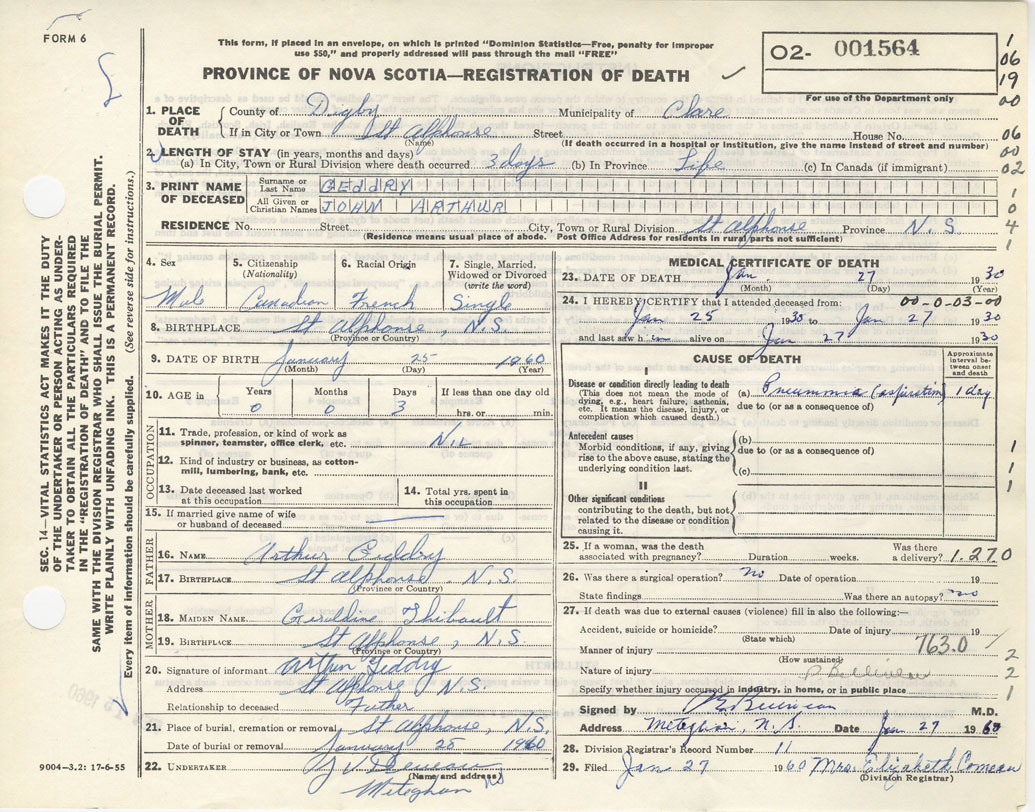 FORM 6
This form, if placed in an envelope, on which is printed "Dominion Statistics—Free, penalty for improper
use $50," and properly addressed will pass through the mail "FREE"
PROVINCE OF NOVA SCOTIA—REGISTRATION OF DEATH
02- 001564
For use of the Department only
1
06
19
00
06
00
02
1
0
4
1
1. PLACE OF DEATH County of Digby Municipality of Clare
If in City or Town St Alphonse Street House No.
(Name) (If death occurred in a hospital or institution, give the name instead of street and number)
2. LENGTH OF STAY (in years, months and days)
(a) In City, Town or Rural Division where death occurred 3 days (b) In Province Life (c) In Canada (if immigrant)
3. PRINT NAME OF DECEASED
Surname or Last Name GEDDRY
All Given or Christian Names JOHN ARTHUR
RESIDENCE No. Street City, Town or Rural Division St Alphonse Province N.S.
(Residence means usual place of abode. Post Office Address for residents in rural parts not sufficient)
4. Sex 5. Citizenship 6. Racial Origin 7. Single, Married,
(Nationality) Widowed or Divorced
(write the word)
Male Canadian French Single
8. BIRTHPLACE St Alphonse, N.S.
(Province or Country)
9. DATE OF BIRTH January 25 1960
(Month) (Day) (Year)
10. AGE in Years Months Days If less than one day old
0 0 3 hrs. or min.
OCCUPATION
11. Trade, profession, or kind of work as
spinner, teamster, office clerk, etc. Nil
12. Kind of industry or business, as cotton-
mill, lumbering, bank, etc.
13. Date deceased last worked
at this occupation
14. Total yrs. spent in
this occupation
15. If married give name of wife
or husband of deceased
FATHER
16. NAME Arthur Geddry
17. BIRTHPLACE St Alphonse. N.S.
(Province or Country)
MOTHER
18. MAIDEN NAME Geraldine Thibault
19. BIRTHPLACE St Alphonse, N.S.
(Province or Country)
20. Signature of informant Arthur Geddry
Address St Alphonse N.S.
Relationship to deceased Father
21. Place of burial, cremation or removal St Alphonse, N.S.
Date of burial or removal January 25 1960
22. UNDERTAKER
(Name and address)
Meteghan NS
9004-3.2: 17-6-55
MEDICAL CERTIFICATE OF DEATH
23. DATE OF DEATH Jan. 27 1930
(Month) (Day) (Year)
24. I HEREBY CERTIFY that I attended deceased from: 00-0-03-00
Jan 25 1930 to Jan 27 1930
and last saw him alive on Jan 27 1930
CAUSE OF DEATH
Approximate
interval be-
tween onset
and death
I
Disease or condition directly leading to death
(This does not mean the mode of
dying, e.g., heart failure, asthenia,
etc. It means the disease, injury, or
complication which caused death.)
(a) Pneumonia (aspiration) 1 day
due to (or as a consequence of)
Antecedent causes
Morbid conditions, if any, giving
rise to the above cause, stating the
underlying condition last.
(b)
due to (or as a consequence of)
(c)
1
1
1
II
Other significant conditions
contributing to the death, but not
related to the disease or condition
causing it.
25. If a woman, was the death
associated with pregnancy? Duration weeks. Was there
a delivery? 1.270
26. Was there a surgical operation? no Date of operation 19
State findings Was there an autopsy? no
27. If death was due to external causes (violence) fill in also the following:—
Accident, suicide or homicide? Date of injury 19
(State which)
Manner of injury 763.0
(How sustained)
Nature of injury
Specify whether injury occurred in industry, in home, or in public place
2
2
1
Signed by M.D.
Address Meteghan, N.S. Date Jan 27 1960
28. Division Registrar's Record Number 11
29. Filed Jan 27 1960 Mrs. Elizabeth Comeau
(Division Registrar)
SEC. 14—VITAL STATISTICS ACT MAKES IT THE DUTY
OF THE UNDERTAKER OR PERSON ACTING AS UNDER-
TAKER TO OBTAIN ALL THE PARTICULARS REQUIRED
IN THE "REGISTRATION OF DEATH" AND TO FILE THE
SAME WITH THE DIVISION REGISTRAR WHO SHALL ISSUE THE BURIAL PERMIT.
WRITE PLAINLY WITH UNFADING INK. THIS IS A PERMANENT RECORD.
Every item of information should be carefully supplied. (See reverse side for instructions.)